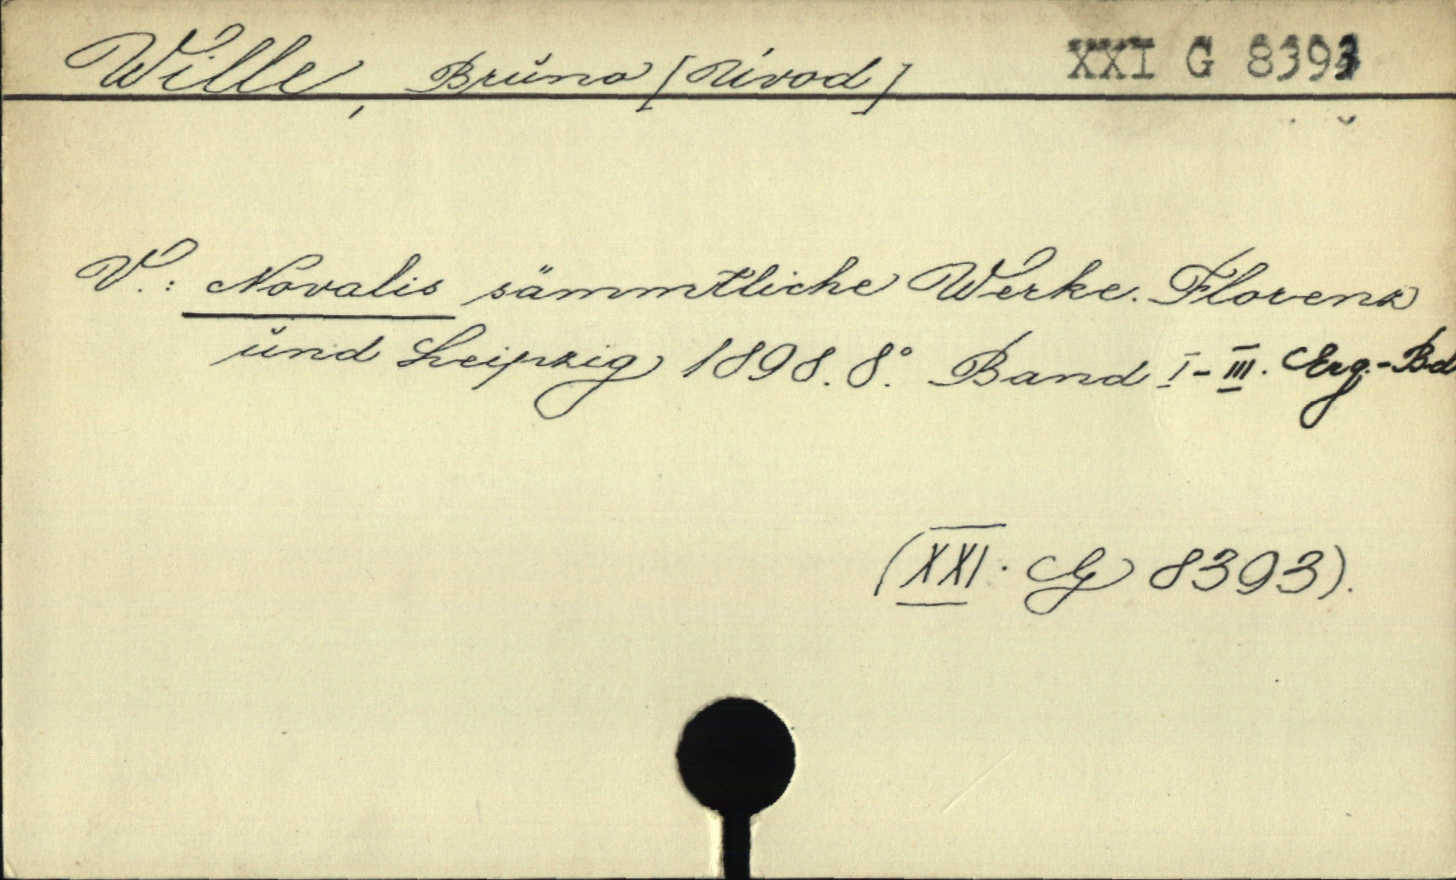 Wille, Bruno [Úvod] XXI G 8393
V.: Novalis sämmtliche Werke. Florenz
und Leipzig 1898. 8°. Band I-III. Erg.-Bd
(XXI. G 8393).